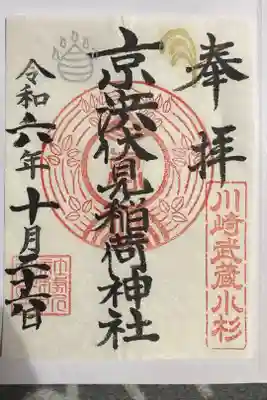 奉拝
川崎武蔵小杉
京濱伏見稲荷神社
令和六年十月二十六日